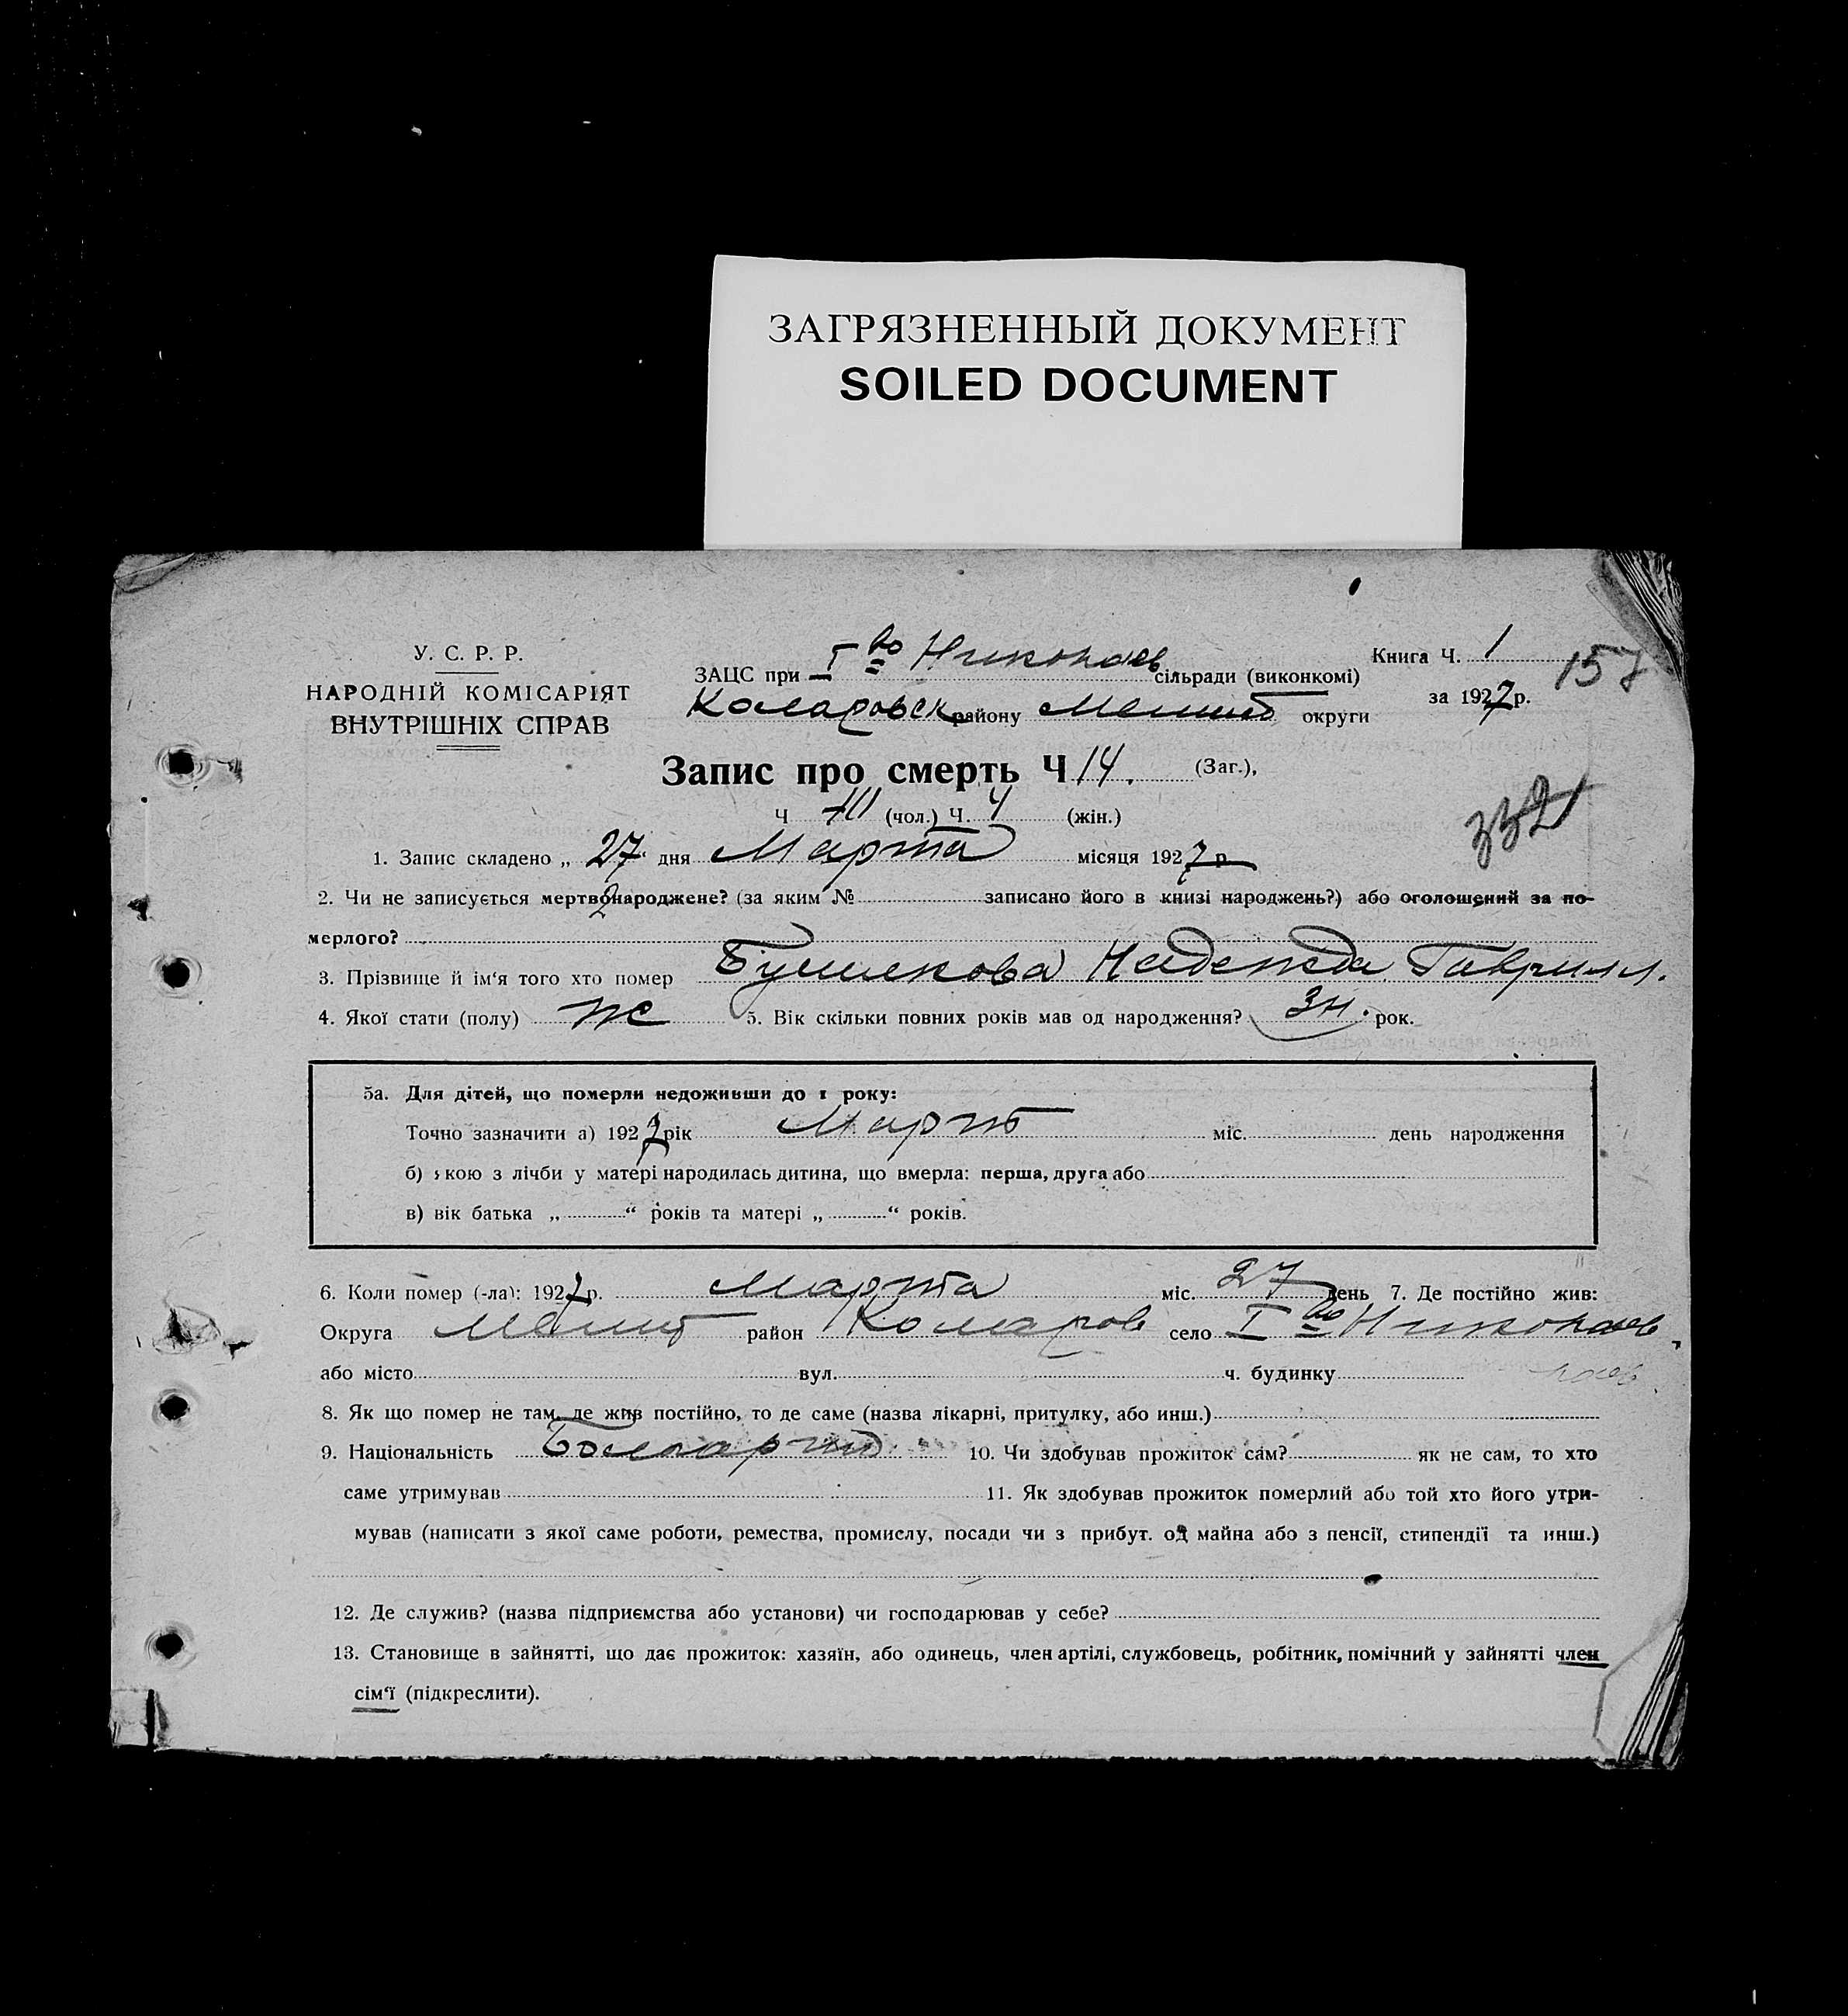 ЗАГРЯЗНЕННЫЙ ДОКУМЕНТ
SOILED DOCUMENT
У. С. Р. Р.
НАРОДНІЙ КОМІСАРІЯТ
ВНУТРІШНІХ СПРАВ
ЗАЦС при I во Николаев сільради (виконкомі)
Коларовск району Мелит округи
Книга Ч. 1
157
за 1927 р.
Запис про смерть Ч 14. (Заг.),
Ч (чол.) Ч. 4 (жін.)
332
1. Запис складено „ 27 “ дня Марта місяця 1927 р
2. Чи не записується мертвонароджене? (за яким № записано його в книзі народжень?) або оголошений за по-
мерлого?
3. Прізвище й ім‘я того хто помер Надежда Гаврилл.
4. Якої стати (полу) ж 5. Вік скільки повних років мав од народження? 3н. рок.
5а. Для дітей, що померли недоживши до 1 року:
Точно зазначити а) 1927 рік Март міс. день народження
б) кою з лічби у матері народилась дитина, що вмерла: перша, друга або
в) вік батька „ “ років та матері „ “ років.
6. Коли помер (-ла): 1927 р. Марта міс. 27 день 7. Де постійно жив:
Округа Мелит район Коларов село I во Николаев
або місто вул. ч. будинку лаев.
8. Як що помер не там, де жив постійно, то де саме (назва лікарні, притулку, або инш.)
9. Національність 10. Чи здобував прожиток сам? як не сам, то хто
саме утримував 11. Як здобував прожиток померлий або той хто його утри-
мував (написати з якої саме роботи, ремества, промислу, посади чи з прибут. од майна або з пенсії, стипендії та инш.)
12. Де служив? (назва підприємства або установи) чи господарював у себе?
13. Становище в зайнятті, що дає прожиток: хазяїн, або одинець, член артілі, службовець, робітник, помічний у зайнятті член
сім‘ї (підкреслити).